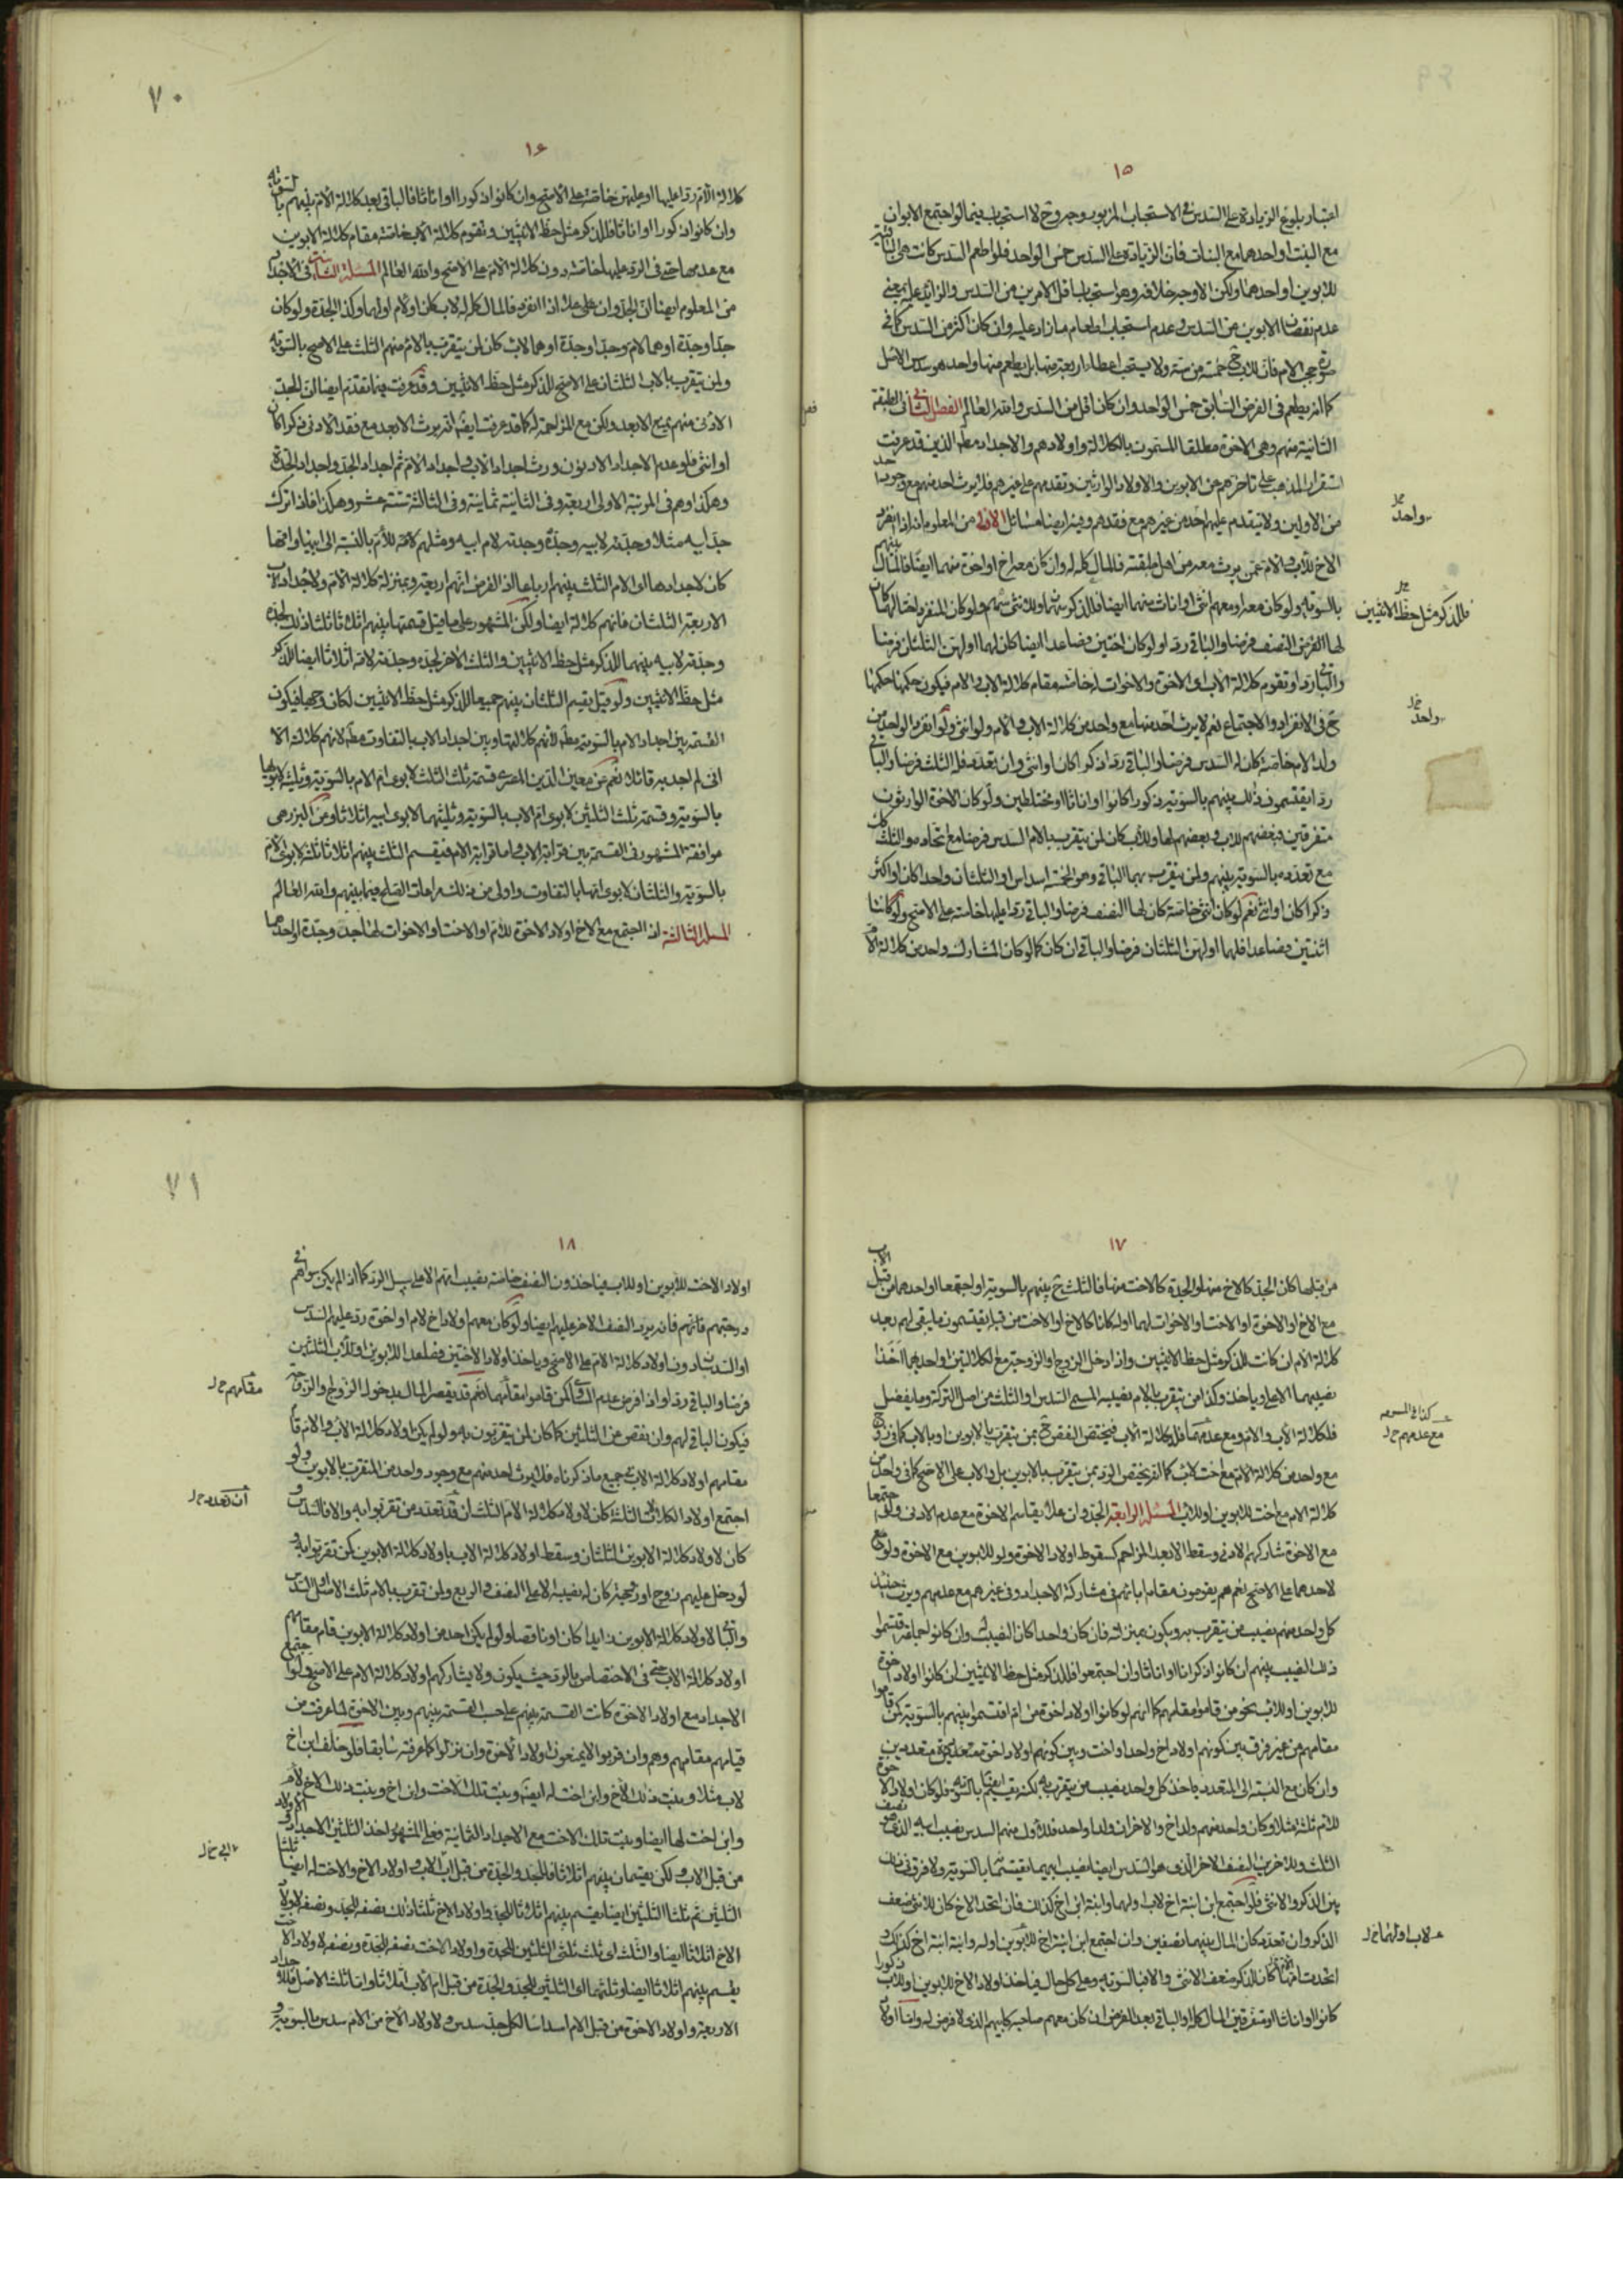 ١٥
اعتبار بلوغ الزيادة على السدس في الاستحباب المزبور وجه وح لا استحباب فيما لو اجتمع الابوان
مع البنت او احدهما مع البنات فان الزيادة على السدس خمس الواحد فلو اطعم السدس كانت هي
للابوين او احدهما ولكن الاوجه خلافه وهو استحباب اقل الامرين من السدس والزايد عليه بمعنى
عدم نقصان الابوين عن السدس وعدم استحباب اطعام ما زاد عليه وان كان اكثر من السدس كما في
حجب الام فان للاب ح خمسة من ستة ولا يستحب اعطاء اربعة منها بل يطعم منها واحد هو سدس الاصل
كما انه يطعم في الفرض السابق خمس الواحد وان كان اقل من السدس والله العالم الفصل الثاني في الطبقة
الثانية منهم وهي الاخوة مطلقا المسمون بالكلالة واولادهم والاجداد مطلقا الذين قد عرفت
استقرار المذهب على تاخرهم عن الابوين والاولاد الوارثين وتقدمهم على غيرهم فلا يورث احد منهم مع وجود
من الاولين ولا يتقدم عليهم احد من غيرهم مع فقدهم وفيه ايضا مسائل الاولى من المعلوم انه اذا انفرد
الاخ للاب والام عمن يرث معه من اهل طبقته فالمال كله له وان كان معه اخ او اخوة منهما ايضا فالمال
بالسوية ولو كان معه او معهم انثى او اناث منهما ايضا فللذكر سهمان وللانثى سهم ولو كان المنفرد اختا لهما كان
لها الفرض النصف فرضا والباقي ردا ولو كان اختين فصاعدا ايضا كان لهما او لهن الثلثان فرضا
والباقي ردا وتقوم كلالة الاب اي الاخوة والاخوات له خاصة مقام كلالة الاب والام فيكون حكمها حكمها
ح في الانفراد والاجتماع نعم لا يرث احد منها مع واحد من كلالة الاب والام ولو انثى ولو انفرد الواحد من
ولد الام خاصة كان له السدس فرضا والباقي ردا ذكرا كان او انثى وان تعدد فله الثلث فرضا والباقي
ردا يقتسمون ذلك بينهم بالسوية ذكورا كانوا او اناثا او مختلطين ولو كان الاخوة الوارثون
متفرقين فبعضهم للاب وبعضهم لها وللاب كان لمن يتقرب بالام السدس فرضا مع اتحاده والثلث كك
مع تعدده بالسوية بينهم ولمن يتقرب بهما الباقي وهو الخمسة اسداس او الثلثان واحدا كان او اكثر
ذكرا كان او انثى نعم لو كان انثى خاصة كان لها النصف فرضا والباقي ردا عليها خاصة على الاصح ولو كانتا
اثنتين فصاعدا فلهما او لهن الثلثان فرضا والباقي ان كان كما لو كان المشارك واحد من كلالة الام
واحد
فللذكر مثل حظ الانثيين
واحد
٧٠
١٦
كلالة الام ردا عليها او عليهن خاصة على الاصح وان كانوا ذكورا او اناثا فالباقي بعد كلالة الام بينهم بالسوية
وان كانوا ذكورا او اناثا فللذكر مثل حظ الانثيين وتقوم كلالة الاب خاصة مقام كلالة الابوين
مع عدمها حتى في الرد عليها خاصة دون كلالة الام على الاصح والله العالم المسئلة الثانية في الاجداد
من المعلوم ايضا ان الجد وان علا اذا انفرد فالمال كله له لاب كان او لام او لهما وكذا الجدة ولو كان
جدا وجدة او هما لام وجدا وجدة او هما لاب كان لمن يتقرب بالام منهم الثلث على الاصح بالسوية
ولمن يتقرب بالاب الثلثان على الاصح للذكر مثل حظ الانثيين وقد عرفت فيما تقدم ايضا ان الجد
الادنى منهم يمنع الابعد ولكن مع المزاحمة له كما قد عرفت ايضا انه يرث الابعد مع فقد الادنى ذكرا كان
او انثى فلو عدم الاجداد الادنون ورث اجداد الاب واجداد الام ثم اجداد الجد واجداد الجدة
وهكذا وهم في المرتبة الاولى اربعة وفي الثانية ثمانية وفي الثالثة ستة عشر وهكذا فاذا ترك
جد ابيه مثلا وجدته لابيه وجده وجدته لامه ابيه ومثلهم للام بالنسبة الى ابيها وامها
كان لاجدادها اي الام الثلث بينهم ارباعا اذ الفرض انهم اربعة وبمنزلة كلالة الام ولاجداد الاب
الاربعة الثلثان فانهم كلالة ايضا ولكن المشهور على ما قيل قسمتها بينهم اثلاثا ثلثا ذلك لجده
وجدته لابيه بينهما للذكر مثل حظ الانثيين والثلث الاخر لجده وجدته لامه اثلاثا ايضا للذكر
مثل حظ الانثيين ولو قيل يقسم الثلثان بينهم جميعا للذكر مثل حظ الانثيين لكان وجها فيكون
القسمة بين اجداد الام بالسوية مطلقا لانهم كلالتها وبين اجداد الاب بالتفاوت مطلقا لانهم كلالته الا
اني لم اجد به قائلا نعم عن معين الدين المصري قسمة ثلث الثلث لابوي ام الام بالسوية وثلثيه لابوي ابيها
بالسوية وقسمة ثلث الثلثين لابوي ام الاب بالسوية وثلثيهما لابوي ابيه اثلاثا وعن البزرهي
موافقة المشهور في القسمة بين قرابة الاب واما قرابة الام فيقسم الثلث بينهم اثلاثا ثلثه لابوي الام
بالسوية والثلثان لابوي ابيها بالتفاوت واولى من ذلك مراعاة الصلح فيما بينهم والله العالم
المسئلة الثالثة اذا اجتمع مع الاخ او اولاد الاخوة للام او الاخت او الاخوات لها جد وجدة او احدهما
١٧
من قبلها كان الجد كالاخ منها والجدة كالاخت منها فالثلث ح بينهم بالسوية ولو اجتمعا او احدهما من قبل الاب
مع الاخ او الاخوة او الاخت او الاخوات لهما او له كانا كالاخ او الاخت من قبله يقتسمون ما بقي لهم بعد
كلالة الام ان كانت للذكر مثل حظ الانثيين واذا دخل الزوج او الزوجة مع الكلالتين واحديهما اخذا
نصيبهما الاعلى وياخذ كذا من يتقرب بالام نصيبه المسمى السدس او الثلث من اصل التركة وما يفضل
فلكلالة الاب والام ومع عدمها فلكلالة الاب فيختص النقص ح بمن يتقرب بالابوين او بالاب كما في زوج
مع واحد من كلالة الام مع اخت لاب كما انه يختص الرد بمن يتقرب بالابوين بل والاب على الاصح كما في واحد من
كلالة الام مع اخت للابوين او للاب المسئلة الرابعة الجد وان علا يقاسم الاخوة مع عدم الادنى ولو اجتمعا
مع الاخوة شاركهم الادنى وسقط الابعد المزاحم كسقوط اولاد الاخوة ولو للابوين مع الاخوة ولو
لاحدهما على الاصح نعم هم يقومون مقام ابائهم في مشاركة الاجداد وفي غيرهم مع عدمهم ويرث حينئذ
كل واحد منهم نصيب من يتقرب به ويكون بمنزلته فان كان واحدا كان النصيب له وان كانوا جماعة اقتسموا
ذلك النصيب بينهم ان كانوا ذكرانا او اناثا وان اجتمعوا فللذكر مثل حظ الانثيين ان كانوا اولاد اخوة
للابوين او للاب نحو من قاموا مقامهم كما انهم لو كانوا اولاد اخوة من ام اقتسموا بينهم بالسوية كمن قاموا
مقامهم من غير فرق بين كونهم اولاد اخ واحد او اخت وبين كونهم اولاد اخوة متعددين
وان كان مع النسبة الى المتعدد ياخذ كل واحد نصيب من يتقرب به لكنه يقسم بالسوية فلو كان اولاد الاخوة
للام ثلثة مثلا وكان واحد منهم ولد اخ والاخران ولدا واحد فللاول منهم السدس نصيب ابيه الذي هو نصف
الثلث وللاخرين النصف الاخر الذي هو السدس ايضا نصيب ابيهما يقتسمانه بالسوية ولا فرق في ذلك
بين الذكر والانثى فلو اجتمع ابن ابنة اخ لاب ولهما وابنة ابن اخ كذلك فان اتحد الاخ كان للانثى ضعف
الذكر وان تعدد كان المال بينهما نصفين وان اجتمع ابن ابنة اخ للابوين او له وابنة ابنة اخ كذلك
اتحدت امهما كان للذكر ضعف الانثى والا فبالسوية وعلى كل حال فياخذ اولاد الاخ للابوين او للاب ذكورا
كانوا او اناثا او متفرقين المال كله او الباقي بعد الفرض ان كان معهم صاحبه كابيهم الذي لا فرض له واما اولاد
مع عدمهم
لاب او لهما
٧١
١٨
اولاد الاخت للابوين او للاب فياخذون النصف خاصة نصيب امهم الا على سبيل الرد كما اذا لم يكن سواهم في
درجتهم فانهم فانه يرد النصف الاخر عليهم ايضا ولو كان معهم اولاد اخ لام او اخوة رد عليهم السدس
او السدسان دون اولاد كلالة الام على الاصح وياخذ اولاد الاختين فصاعدا للابوين او للاب الثلثين
فرضا والباقي ردا واذا فرض عدم الرد كمن قاموا مقامهما نعم قد يقصر المال بدخول الزوج والزوجة
فيكون الباقي لهم وان نقص من الثلثين كما كان لمن يتقربون به ولو لم يكن اولاد كلالة الاب والام قام
مقامهم اولاد كلالة الاب في جميع ما ذكرناه فلا يرث احد منهم مع وجود واحد من المتقرب بالابوين ولو
اجتمع اولاد الكلالات الثلث كان لاولاد كلالة الام الثلث ان قد تعدد من تقربوا به والا فالسدس و
كان لاولاد كلالة الابوين الثلثان وسقط اولاد كلالة الاب باولاد كلالة الابوين كمن تقربوا به و
لو دخل عليهم زوج او زوجة كان له نصيبه الاعلى النصف والربع ولمن تقرب بالام ثلث الاصل او السدس
والباقي لاولاد كلالة الابوين زايدا كان او ناقصا ولو لم يكن احد من اولاد كلالة الابوين قام مقامهم
اولاد كلالة الاب حتى في الاختصاص بالرد حيث يكون ولا يشاركهم اولاد كلالة الام على الاصح ولو اجتمع
الاجداد مع اولاد الاخوة كانت القسمة بينهم على حسب القسمة بينهم وبين الاخوة لما عرفت من
قيامهم مقامهم وهم وان قربوا لا يمنعون اولاد الاخوة وان نزلوا كما عرفته سابقا فلو خلف ابن اخ
لاب مثلا وبنت ذلك الاخ وابن اخت له ايضا وبنت تلك الاخت وابن اخ وبنت ذلك الاخ لام
وابن اخت لها ايضا وبنت تلك الاخت مع الاجداد الثمانية فعلى المشهور اخذ الثلثين الاجداد
من قبل الاب لكن يقتسمان بينهم اثلاثا فللجد والجدة من قبل اب الاب و اولاد الاخ والاخت له ايضا
الثلثين ثم ثلثا الثلثين ايضا يقسم بينهم اثلاثا للجد و اولاد الاخ ثلثا ذلك نصفه للجد ونصفه لاولاد
الاخ اثلاثا ايضا والثلث اي ثلث ثلثي الثلثين للجدة واولاد الاخت نصفه للجدة ونصفه لاولاد الاخت
يقسم بينهم اثلاثا ايضا وثلثهما اي الثلثين للجد والجدة من قبل ام الاب اثلاثا واما ثلث الاصل فللاجداد
الاربعة واولاد الاخوة من قبل الام اسداسا لكل جد سدس ولاولاد الاخ من الام سدس بالسوية و
مقامهم
ان تعدد